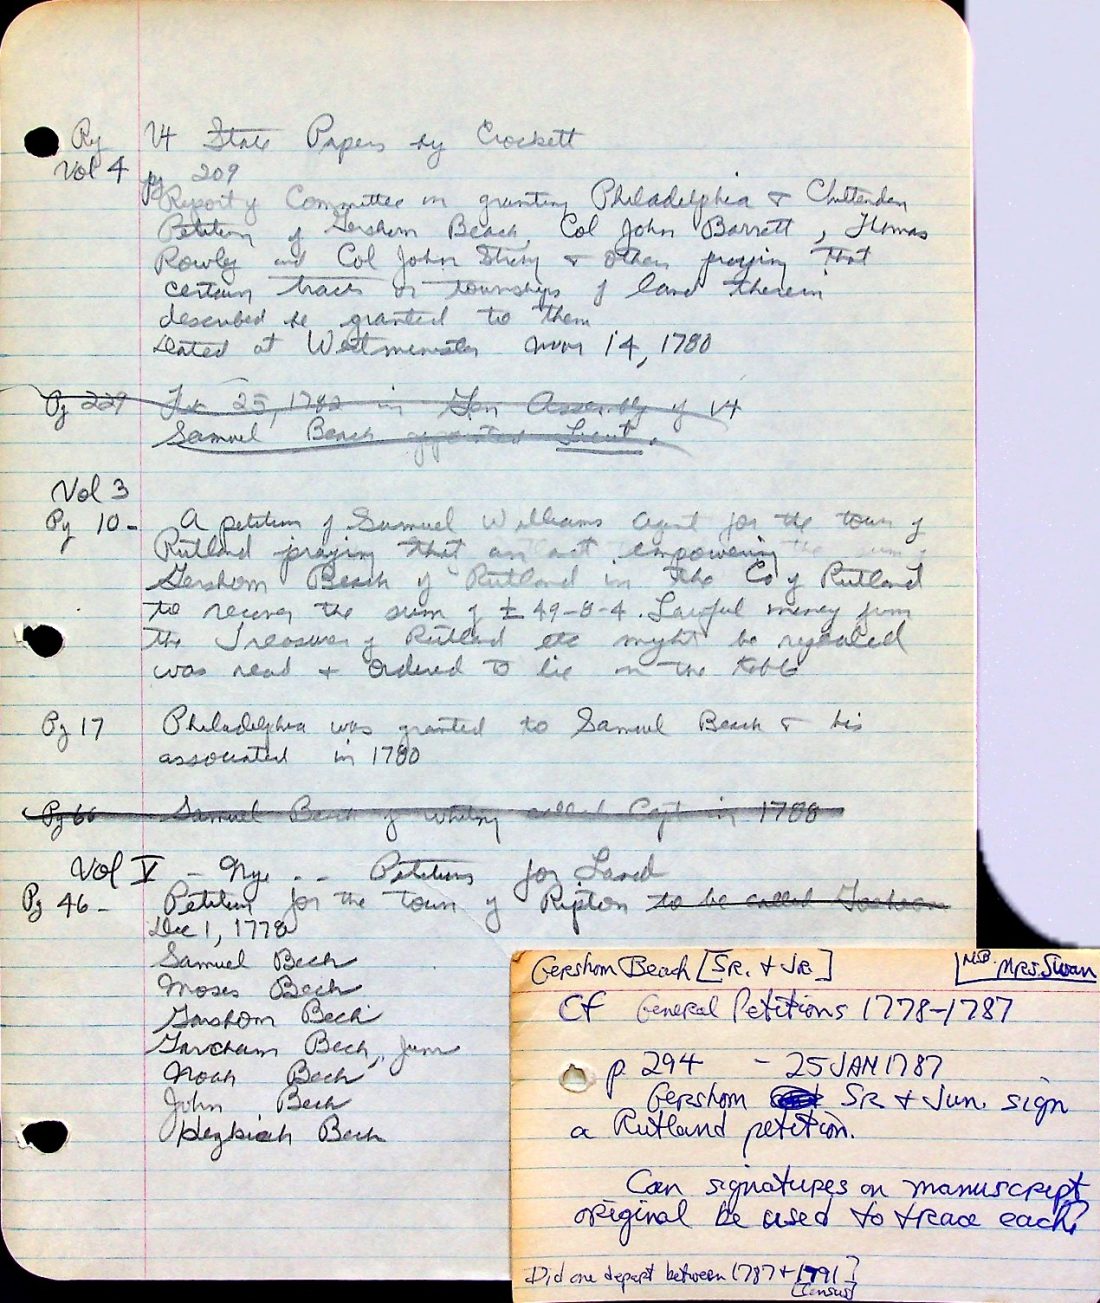 Vt State Papers by Crockett
Vol 4 pg 209
Report of Committee on granting Philadelphia + Chittenden
Petition of Gershom Beach, Col John Barrett, Thomas
Rowley and Col John Strong + others praying that
certain tracts or townships of land therein
described be granted to them
Dated at Westminster Nov 14, 1780
Pg 229 25, 1782 in Gen Assembly of Vt
Samuel Beach appointed Lieut.
Vol 3
Pg 10- A petition of Samuel Williams agent for the town of
Rutland praying that an act empowering
Gershom Beach of Rutland in the Co of Rutland
to recover the sum of £ 49-8-4. Lawful money from
the Treasurer of Rutland etc might be repealed
was read + ordered to lie on the table
Pg 17 Philadelphia was granted to Samuel Beach + his
associated in 1780
Pg 66 Samuel Beach of Whiting called Capt in 1788
Vol V - Nye -- Petitions for Land
Pg 46- Petition for the town of Ripton to be called
Dec 1, 1778
Samuel Bech
Moses Bech
Garshom Bech
Garcham Bech, Junr
Noah Bech
John Bech
Hezkiah Bech
Gershom Beach [SR. + JR.] N.B. Mrs. Swan
Cf General Petitions 1778-1787
p 294 - 25 JAN 1787
Gershom SR + Jun. sign
a Rutland petition.
Can signatures on manuscript
original be used to trace each?
Did one depart between 1787 + 1791?
[census]